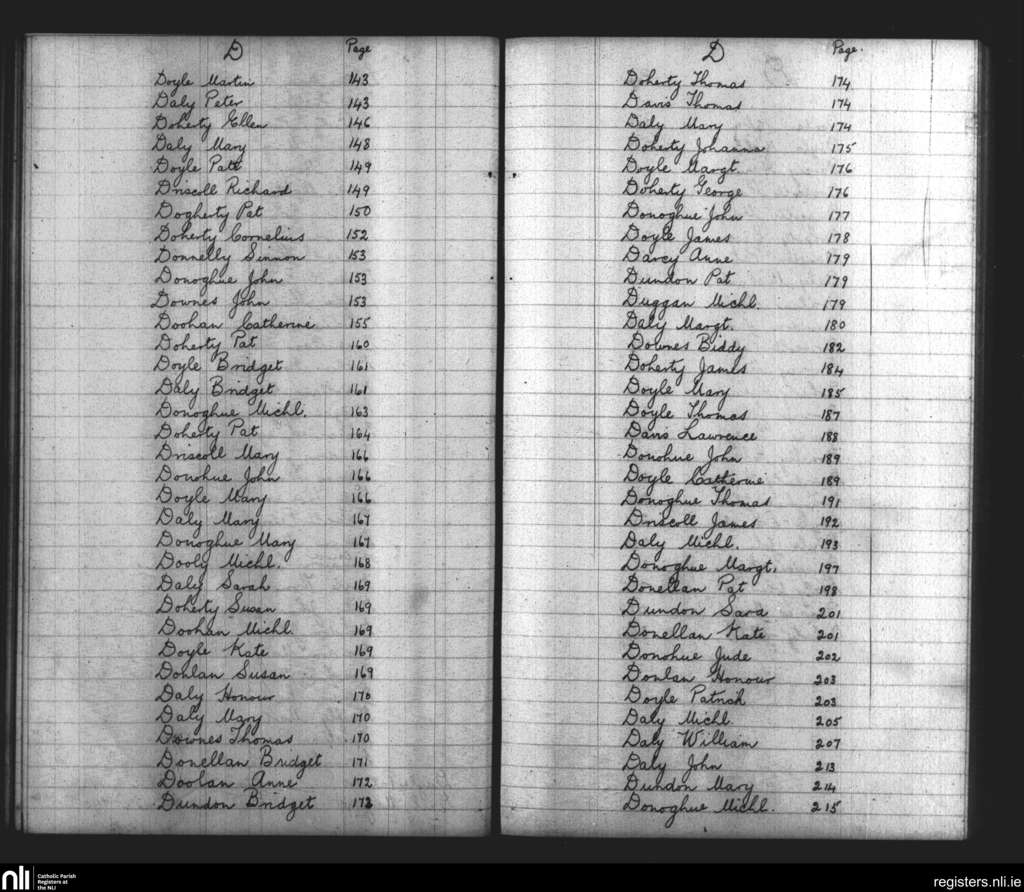 D Page
Doyle Martin 143
Daly Peter 143
Doherty Ellen 146
Daly Mary 148
Doyle Patt 149
Driscoll Richard 149
Dogherty Pat 150
Doherty Cornelius 152
Donnelly Sinnon 153
Donoghue John 153
Downes John 153
Doohan Catherine 155
Doherty Pat 160
Doyle Bridget 161
Daly Bridget 161
Donoghue Michl. 163
Doherty Pat 164
Driscoll Mary 166
Donohue John 166
Doyle Mary 166
Daly Mary 167
Donoghue Mary 167
Dooly Michl. 168
Daly Sarah 169
Doherty Susan 169
Doohan Michl. 169
Doyle Kate 169
Donlan Susan 169
Daly Honour 170
Daly Mary 170
Downes Thomas 170
Donellan Bridget 171
Doolan Anne 172
Dundon Bridget 173
D Page.
Doherty Thomas 174
Davis Thomas 174
Daly Mary 174
Doherty Johanna 175
Doyle Margt. 176
Doherty George 176
Donoghue John 177
Doyle James 178
Darcy Anne 179
Dundon Pat 179
Duggan Michl. 179
Daly Margt. 180
Downes Biddy 182
Doherty James 184
Doyle Mary 185
Doyle Thomas 187
Davis Lawrence 188
Donohue John 189
Doyle Catherine 189
Donoghue Thomas 191
Driscoll James 192
Daly Michl. 193
Donoghue Margt. 197
Donellan Pat 198
Dundon Sara 201
Donellan Kate 201
Donohue Jude 202
Donlan Honour 203
Doyle Patrick 203
Daly Michl 205
Daly William 207
Daly John 213
Dundon Mary 214
Donoghue Michl. 215
nli Catholic Parish
Registers at
the NLI
registers.nli.ie